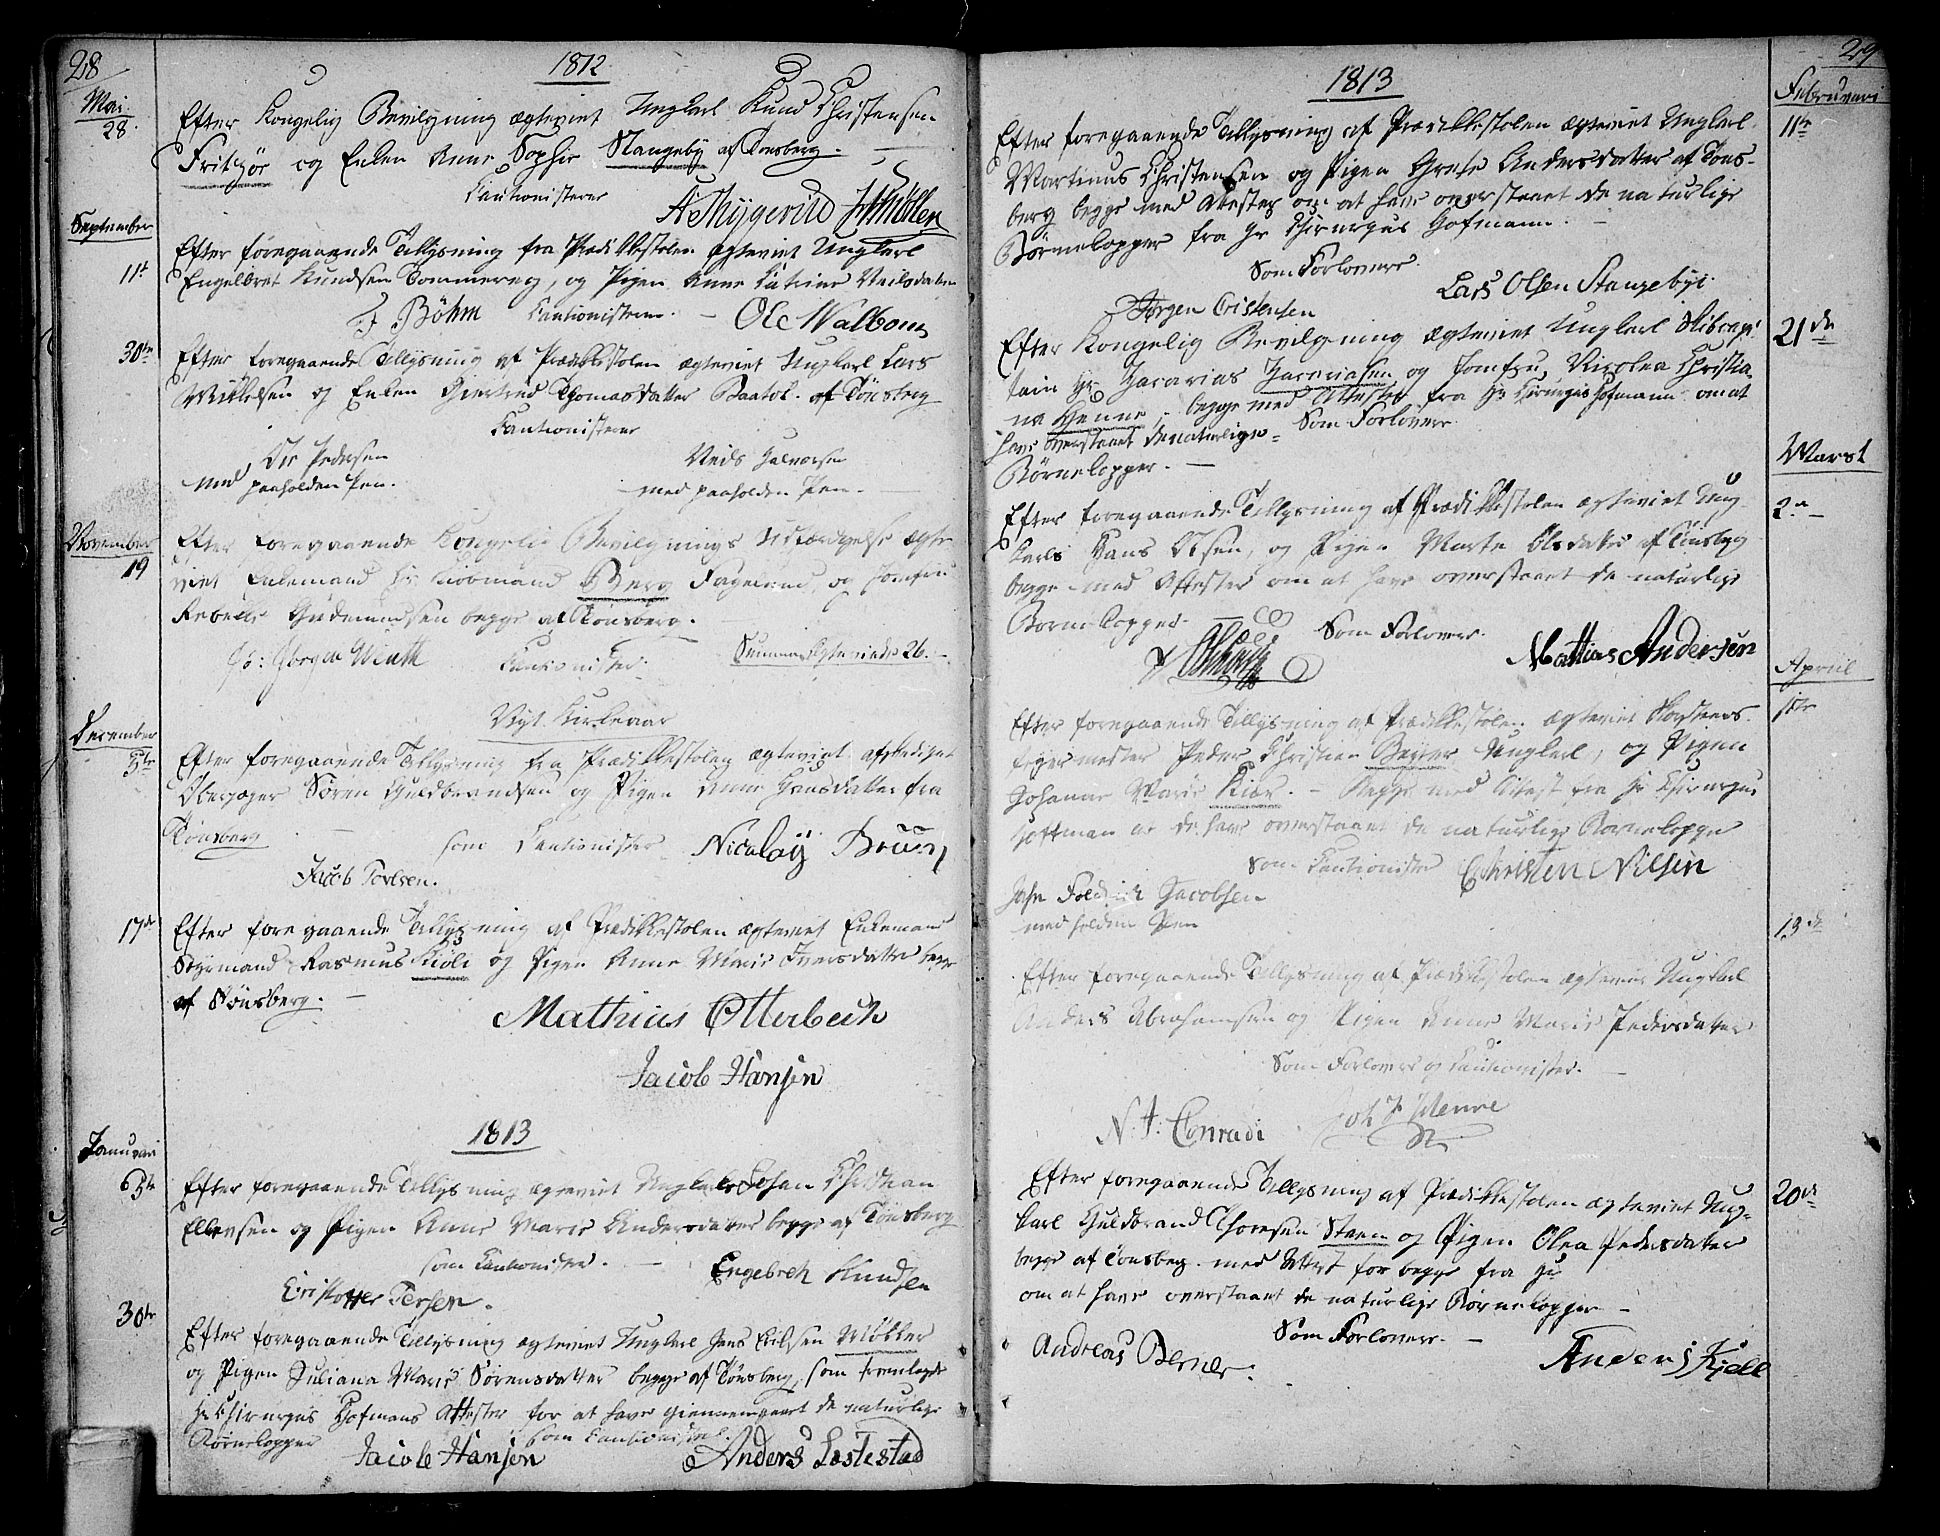 28
1812
Mai.
28.
Efter Kongelig Bevilgning ægteviet Ungkarl Knud Christensen
Fritzøe og Enken Anne Sophie Slangeby af Tønsberg. —
Cautionisterer
September
11te
Efter foregaaende Tillysning fra Prædikkestolen ægteviet Ungkarl
Engelbret Knudsen Tommereg, og Pigen Anne Catrine Neilsdatter
Böhm Cautionisterer. — Ole Walbom
30te
Efter foregaaende Tillysning af Prædikkestolen ægteviet Ungkarl Lars
Mikkelsen og Enken Giertrud Thomasdatter Baatøl. af Tönsberg
Cautionisterer
Ole Pedersen
Neils Halvorsen
med paaholden Pen.
med paaholden Pen. —
November
19
Efter foregaaende Kongelig Bevilgnings Udfærdigelse ægte
viet Enkemand Hr Kiøbmand Berg Fagerlund, og Jomfru
Rebecke Gudmundsen begge af Tönsberg.
Jørgen Winth Cautionister. Summa Ægteviede 26. —
Nyt Kirkeaar
December
3te
Efter foregaaende Tillysning fra Prædikkestolen ægteviet afskediget
Oberjæger Sören Guldbrandsen og Pigen Anne Hansdatter fra
Tönsberg — som Cautionister Nicolay Bruun
Jacob Torlsen.
17de
Efter foregaaende Tillysning af Prædikkestolen ægteviet Enkemand
Styrmand Rasmus Kiöli og Pigen Anne Marie Iversdatter begge
af Tönsberg. —
Mathias Otterbech
Jacob Hansen
1813
Januari
6te
Efter foregaaende Tillysning ægteviet Ungkarl Johan Christian
Ellevsen og Pigen Anne Marie Andersdatter begge af Tönsberg
som Cautionister. — Engebreth Knudsen
Cristoffer Tersen.
30te
Efter foregaaende Tillysning ægteviet Ungkarl Jens Eilsen Möller
og Pigen Juliana Marie Sörensdatter begge af Tönsberg, som fremlagde
Hr Chirurgus Hofmans Attester for at have giennemgaaet de naturlige
Børnekopper som Cautionister.
Jacob Hansen Anders Lostestad
29
1813
Februari
11te
Efter foregaaende Tillysning af Prædikkestolen ægteviet Ungkarl
Martinus Christensen og Pigen Grete Andersdatter af Töns-
berg begge med Attester om at have overstaaet de naturlige
Børnekopper fra Hr Chirurgus Hofmann. —
Som Forlovere.
Jørgen Cristensen
Lars Olsen Stangebye.
21de
Efter Kongelig Bevilgning ægteviet Ungkarl Skibcapi-
tain Hr Zacarias Zacariasen og Jomfru Nicolea Christia-
na Henne, begge med Attester fra Hr Cirurgus Hofmann om at
have overstaaet de naturlige Som Forlovere
Børnekopper. —
Marst
2.n
Efter foregaaende Tillysning af Prædikkestolen ægteviet Ung-
karls Hans Olsen, og Pigen Marte Olsdatter af Tönsberg
begge med Attester om at have overstaaet de naturlige
Børnekopper. — Som Forlovere.
Mathias Andersen
Apriil
1ste
Efter foregaaende Tillysning af Prædikkestolen ægteviet Skorsteens-
feiermester Peder Christian Beyer Ungkarl, og Pigen
Johanne Marie Kiær. — Begge med Attest fra Hr Chirurgus
Hoffman at de have overstaaet de naturlige Børnekopper
Som Cautionister Christen Nilsen
Jacobsen
med holden Pen
13de
Efter foregaaende Tillysning af Prædikkestolen ægteviet Ungkarl
Anders Abrahamsen og Pigen Anne Marie Pedersdatter
Som Forlovere og Cautionister. —
N. J. Conradi Joh F Henne
20de
Efter foregaaende Tillysning af Prædikkestolen ægteviet Ung-
karl Guldbrand Thoresen Steen og Pigen Olea Pedersdatter
begge af Tönsberg. med Attest for begge fra Hr
om at have overstaaet de naturlige Børnekopper —
Som Forlovere. —
Andreas Berner.
Anders Kjell